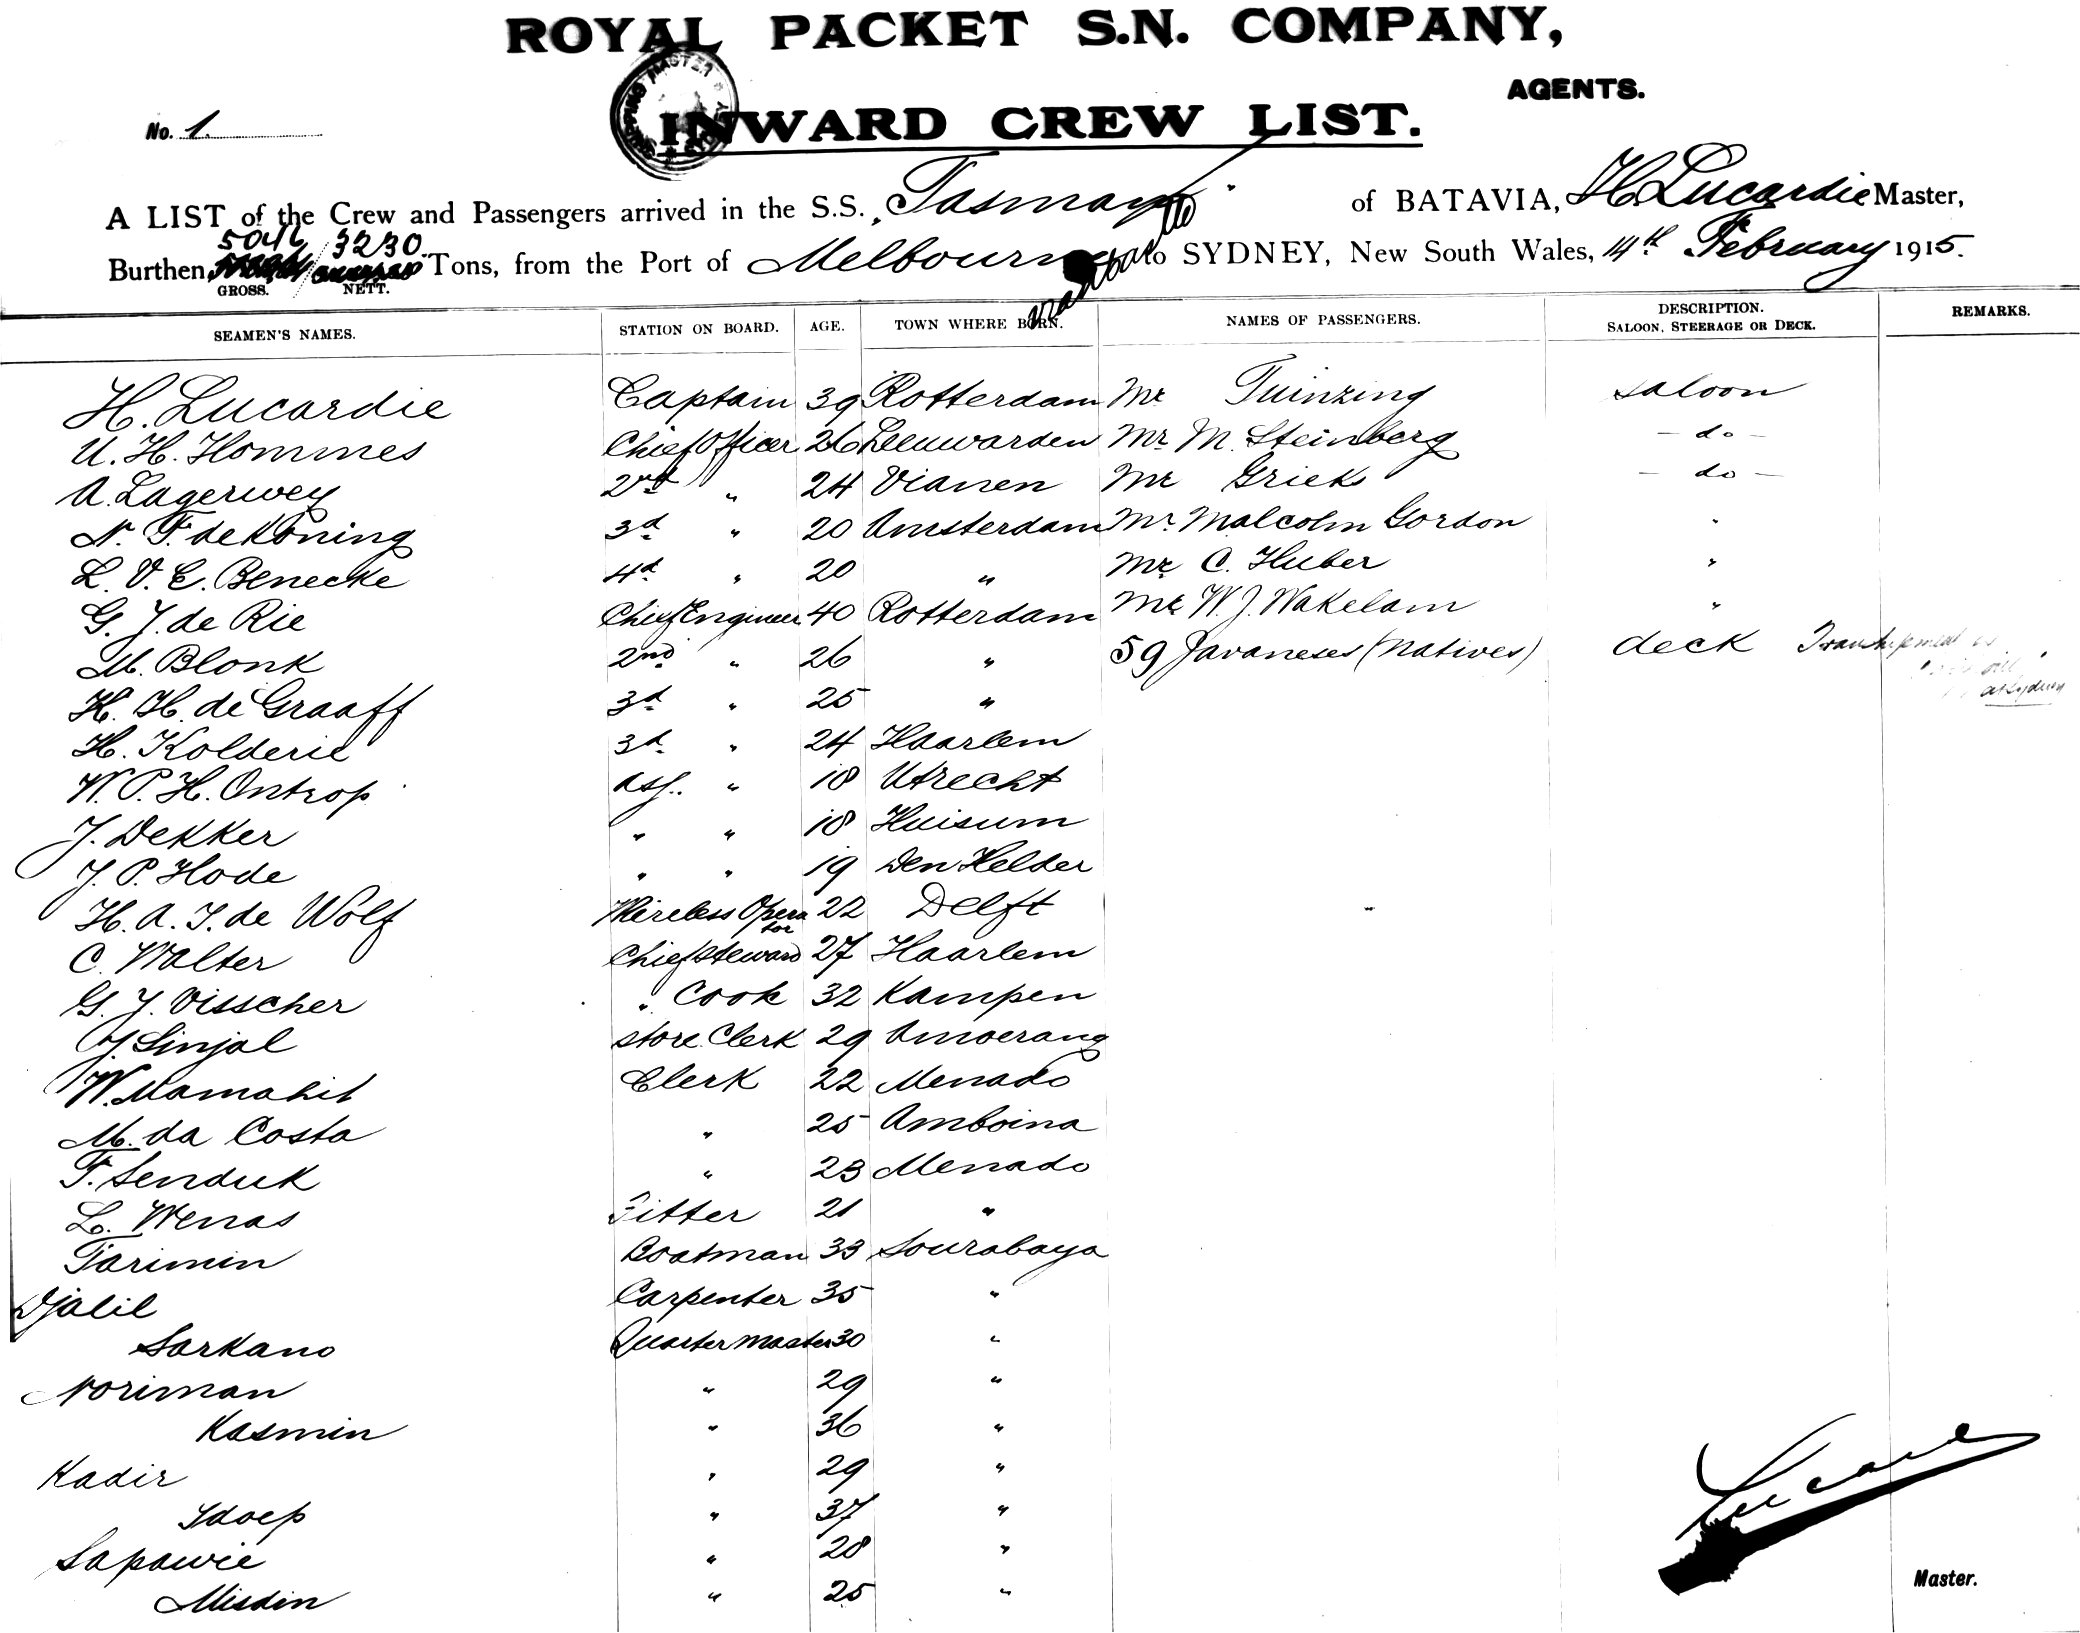 ROYAL PACKET S.N. COMPANY,
AGENTS.
No. 1.
INWARD CREW LIST.
A LIST of the Crew and Passengers arrived in the S.S. "Tasman" of BATAVIA, H. Lucardie Master,
5046 3230
Burthen, Tons, from the Port of Melbourne to SYDNEY, New South Wales, 14th February 1915.
GROSS. NETT.
SEAMEN'S NAMES. STATION ON BOARD. AGE. TOWN WHERE BORN. NAMES OF PASSENGERS. DESCRIPTION. SALOON, STEERAGE OR DECK. REMARKS.
H. Lucardie Captain 39 Rotterdam Mr Tuinzing saloon
U. H. Hommes Chief Officer 26 Leeuwarden Mr. M. Steinberg - do -
A. Lagerwey 2nd " 24 Vianen Mr Grieks - do -
N. F. de Koning 3d " 20 Amsterdam Mr. Malcolm Gordon "
L. V. E. Benecke 4d " 20 " Mr C. Huber "
G. J. de Rie Chief Engineer 40 Rotterdam Mr W. J. Wakelam "
M. Blonk 2nd " 26 " 59 Javaneses (natives) deck
H. H. de Graaff 3d " 25 " at Sydney
H. Kolderie 3d " 24 Haarlem
W. P. H. Ontrop ass. " 18 Utrecht
J. Dekker " " 18 Huisum
J. P. Hode " " 19 Den Helder
H. A. J. de Wolf Wireless Operator 22 Delft
C. Walter Chief Steward 27 Haarlem
G. J. Visscher " Cook 32 Kampen
J. Sinjal store Clerk 29 Amoerang
W. Mamahit Clerk 22 Menado
M. da Costa " 25 Amboina
F. Senduk " 23 Menado
L. Wenas Fitter 21 "
Tarimin Boatman 33 Sourabaya
Djalil Carpenter 35 "
Sarkano Quartermaster 30 "
Noriman " 29 "
Kasmin " 36 "
Kadir " 29 "
Idoep " 37 "
Sapawie " 28 "
Misdin " 25 "
Lucardie
Master.